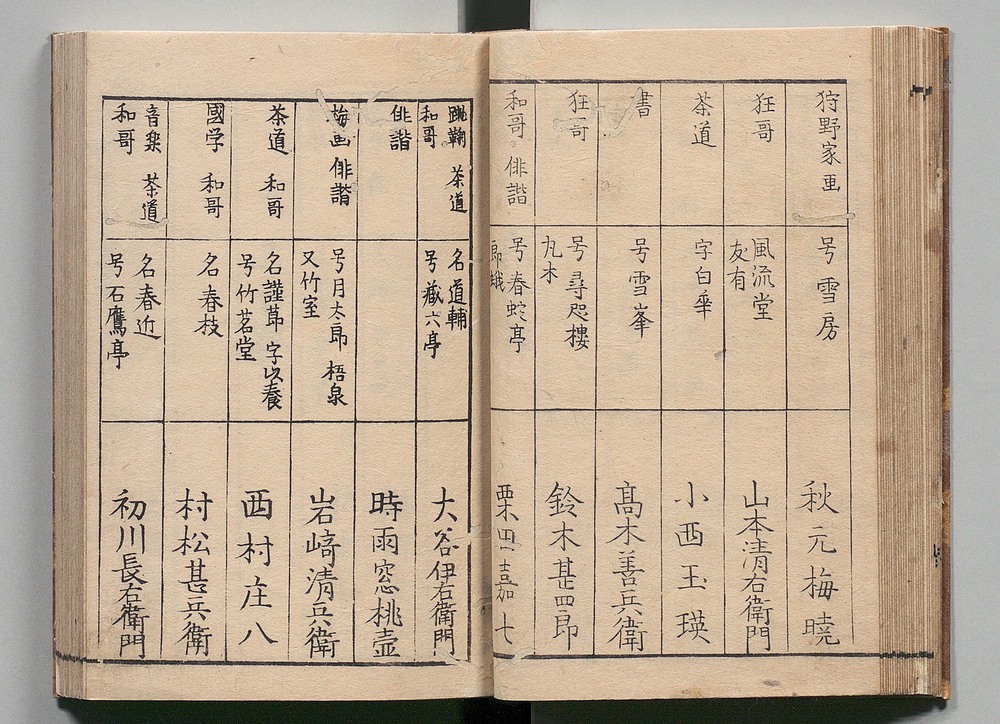 狩野家画
号雪房
秋元梅暁
狂哥
風流堂
友有
山本清右衛門
茶道
字白華
小西玉瑛
書
号雪峯
髙木善兵衛
狂哥
号尋咫樓
九木
鈴木甚四郎
和哥 俳諧
号春蛇亭
栗田嘉七
蹴鞠 茶道
和哥
名道輔
号蔵六亭
大谷伊右衛門
俳諧
時雨窓桃壷
画俳諧
号月太郎 梧泉
又竹室
岩﨑清兵衛
茶道 和哥
名謹節 字以養
号竹茗堂
西村庄八
國学 和哥
名春枝
村松甚兵衛
音楽 茶道
和哥
名春近
号石鷹亭
初川長右衛門